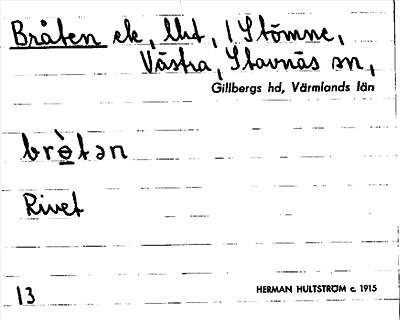 Bråten ek, lht, 1 Stömne,
Västra, Stavnäs sn,
Gillbergs hd, Värmlands län
brè̲tən
Rivet
13
HERMAN HULTSTRÖM c. 1915